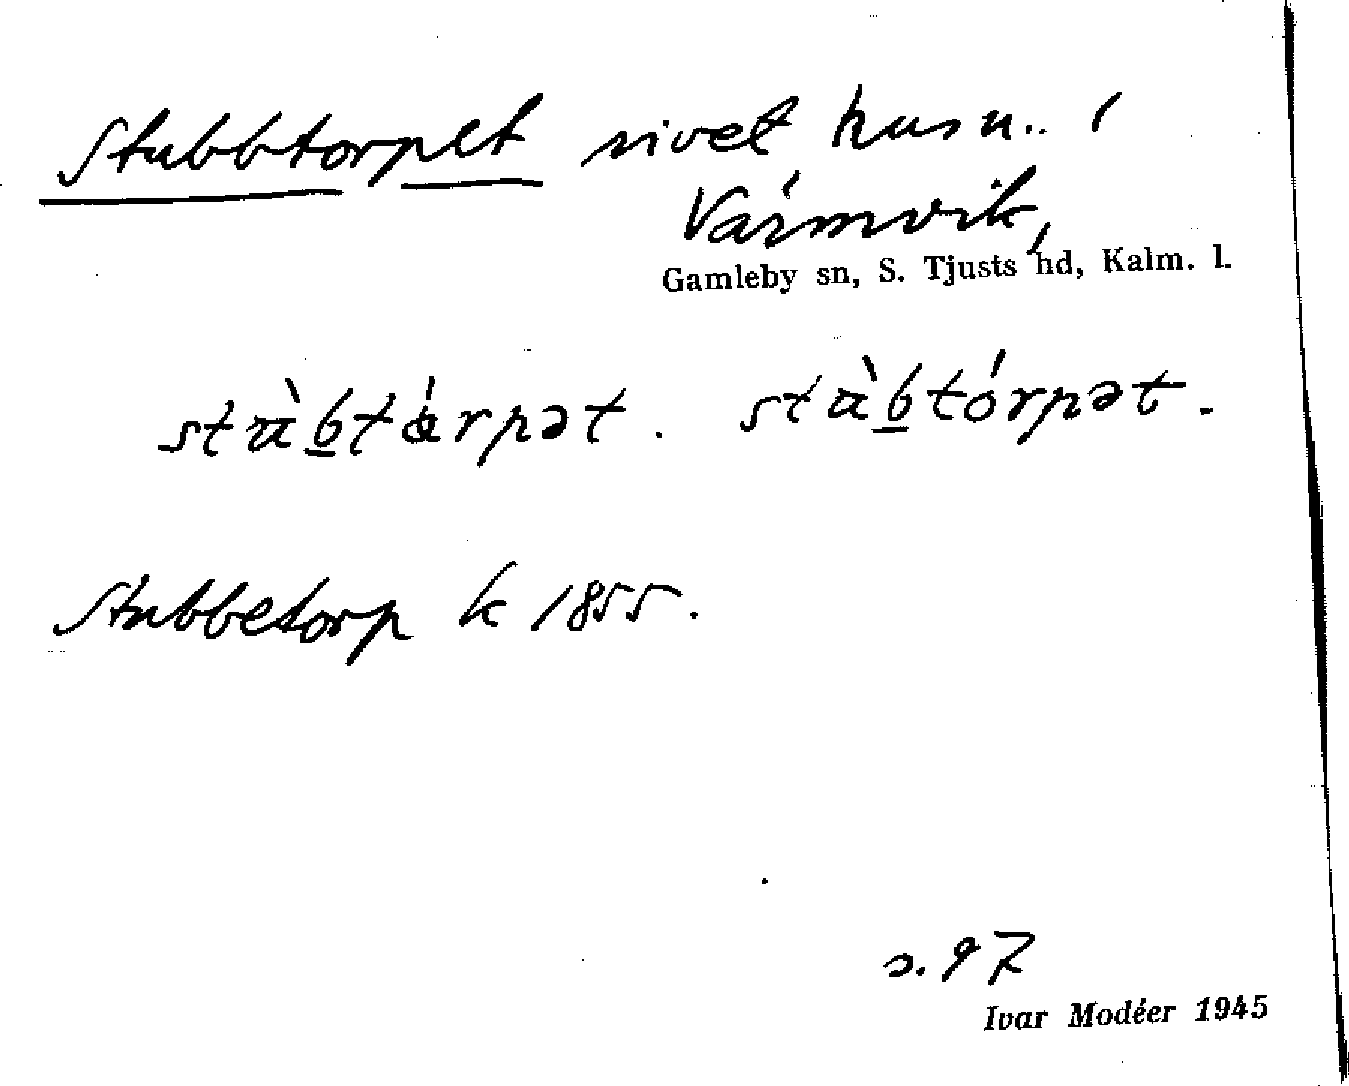 Stubbtorpet rivet husn.. i
Värmvik,
Gamleby sn, S. Tjusts hd, Kalm. l.
stu̇̀btårpət. stu̇̀btórpət.
Stubbetorp k 1855.
s. 97
Ivar Modéer 1945